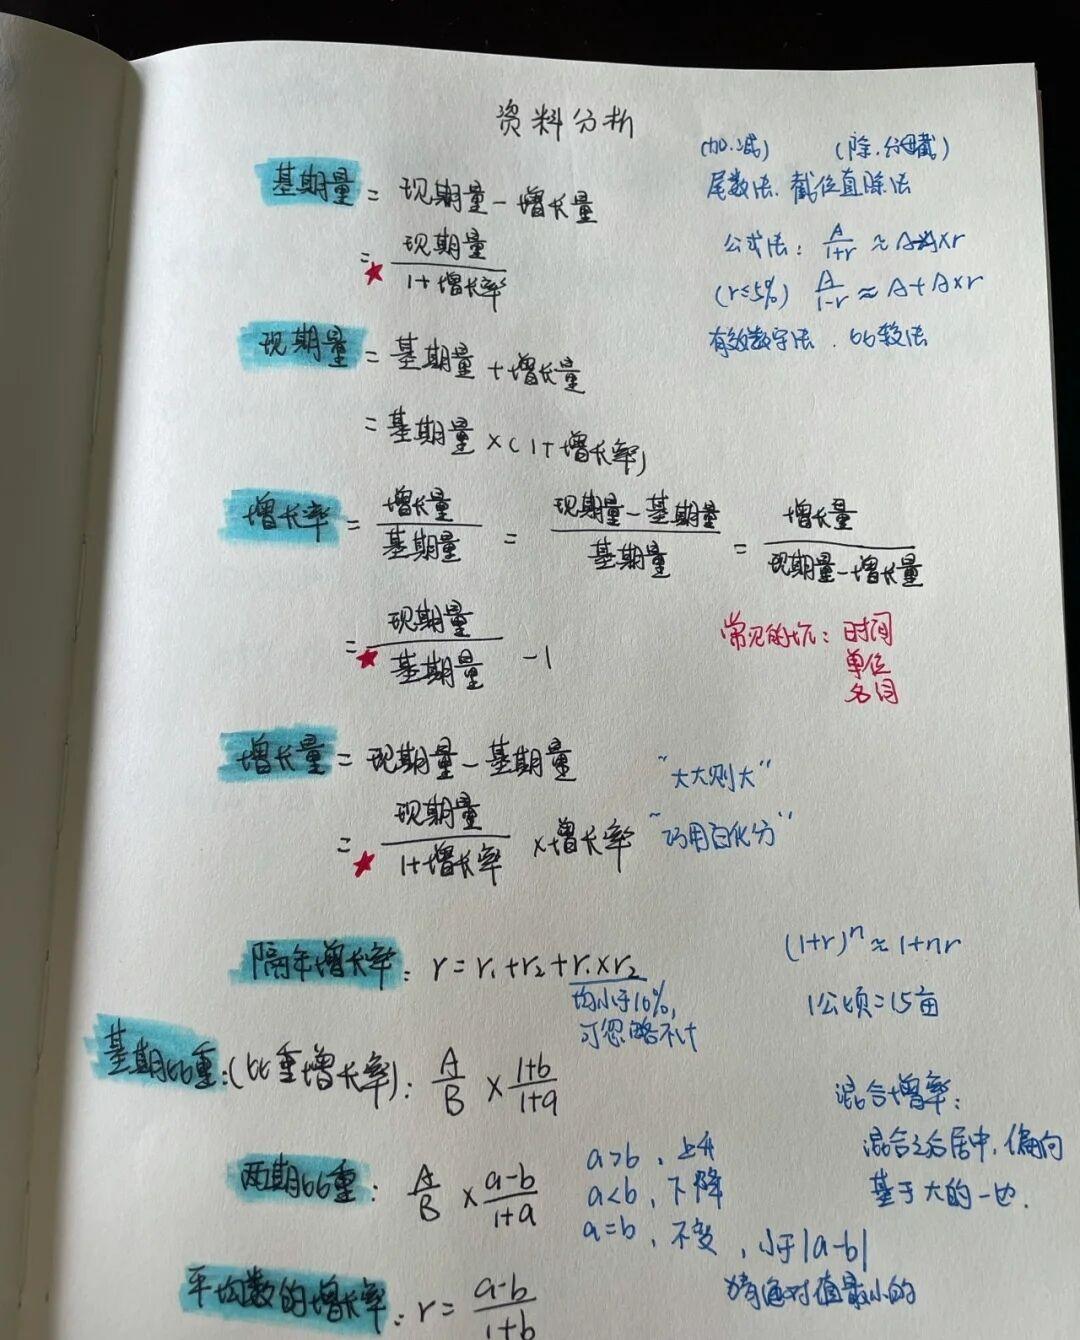 资料分析
(加.减) (除.分母截)
尾数法. 截位直除法
基期量 = 现期量 - 增长量
= 现期量 / 1+增长率
公式法: A/1+r ≈ A-A×r
(r≤5%) A/1-r ≈ A+A×r
有效数字法. 比较法
现期量 = 基期量 + 增长量
= 基期量 ×(1+增长率)
增长率 = 增长量/基期量 = 现期量-基期量/基期量 = 增长量/现期量-增长量
= 现期量/基期量 -1
常见的坑: 时间
单位
名词
增长量 = 现期量 - 基期量
"大大则大"
= 现期量/1+增长率 ×增长率
"巧用百化分"
隔年增长率: r = r₁+r₂+r₁×r₂
均小于10%,
可忽略不计
(1+r)ⁿ ≈ 1+nr
1公顷=15亩
基期比重:(比重增长率): A/B × 1+b/1+a
混合增率:
混合之后居中,偏向
基于大的一边.
两期比重: A/B × a-b/1+a
a>b, 上升
a<b, 下降
a=b, 不变, 小于|a-b|
猜绝对值最小的
平均数的增长率: r = a-b/1+b